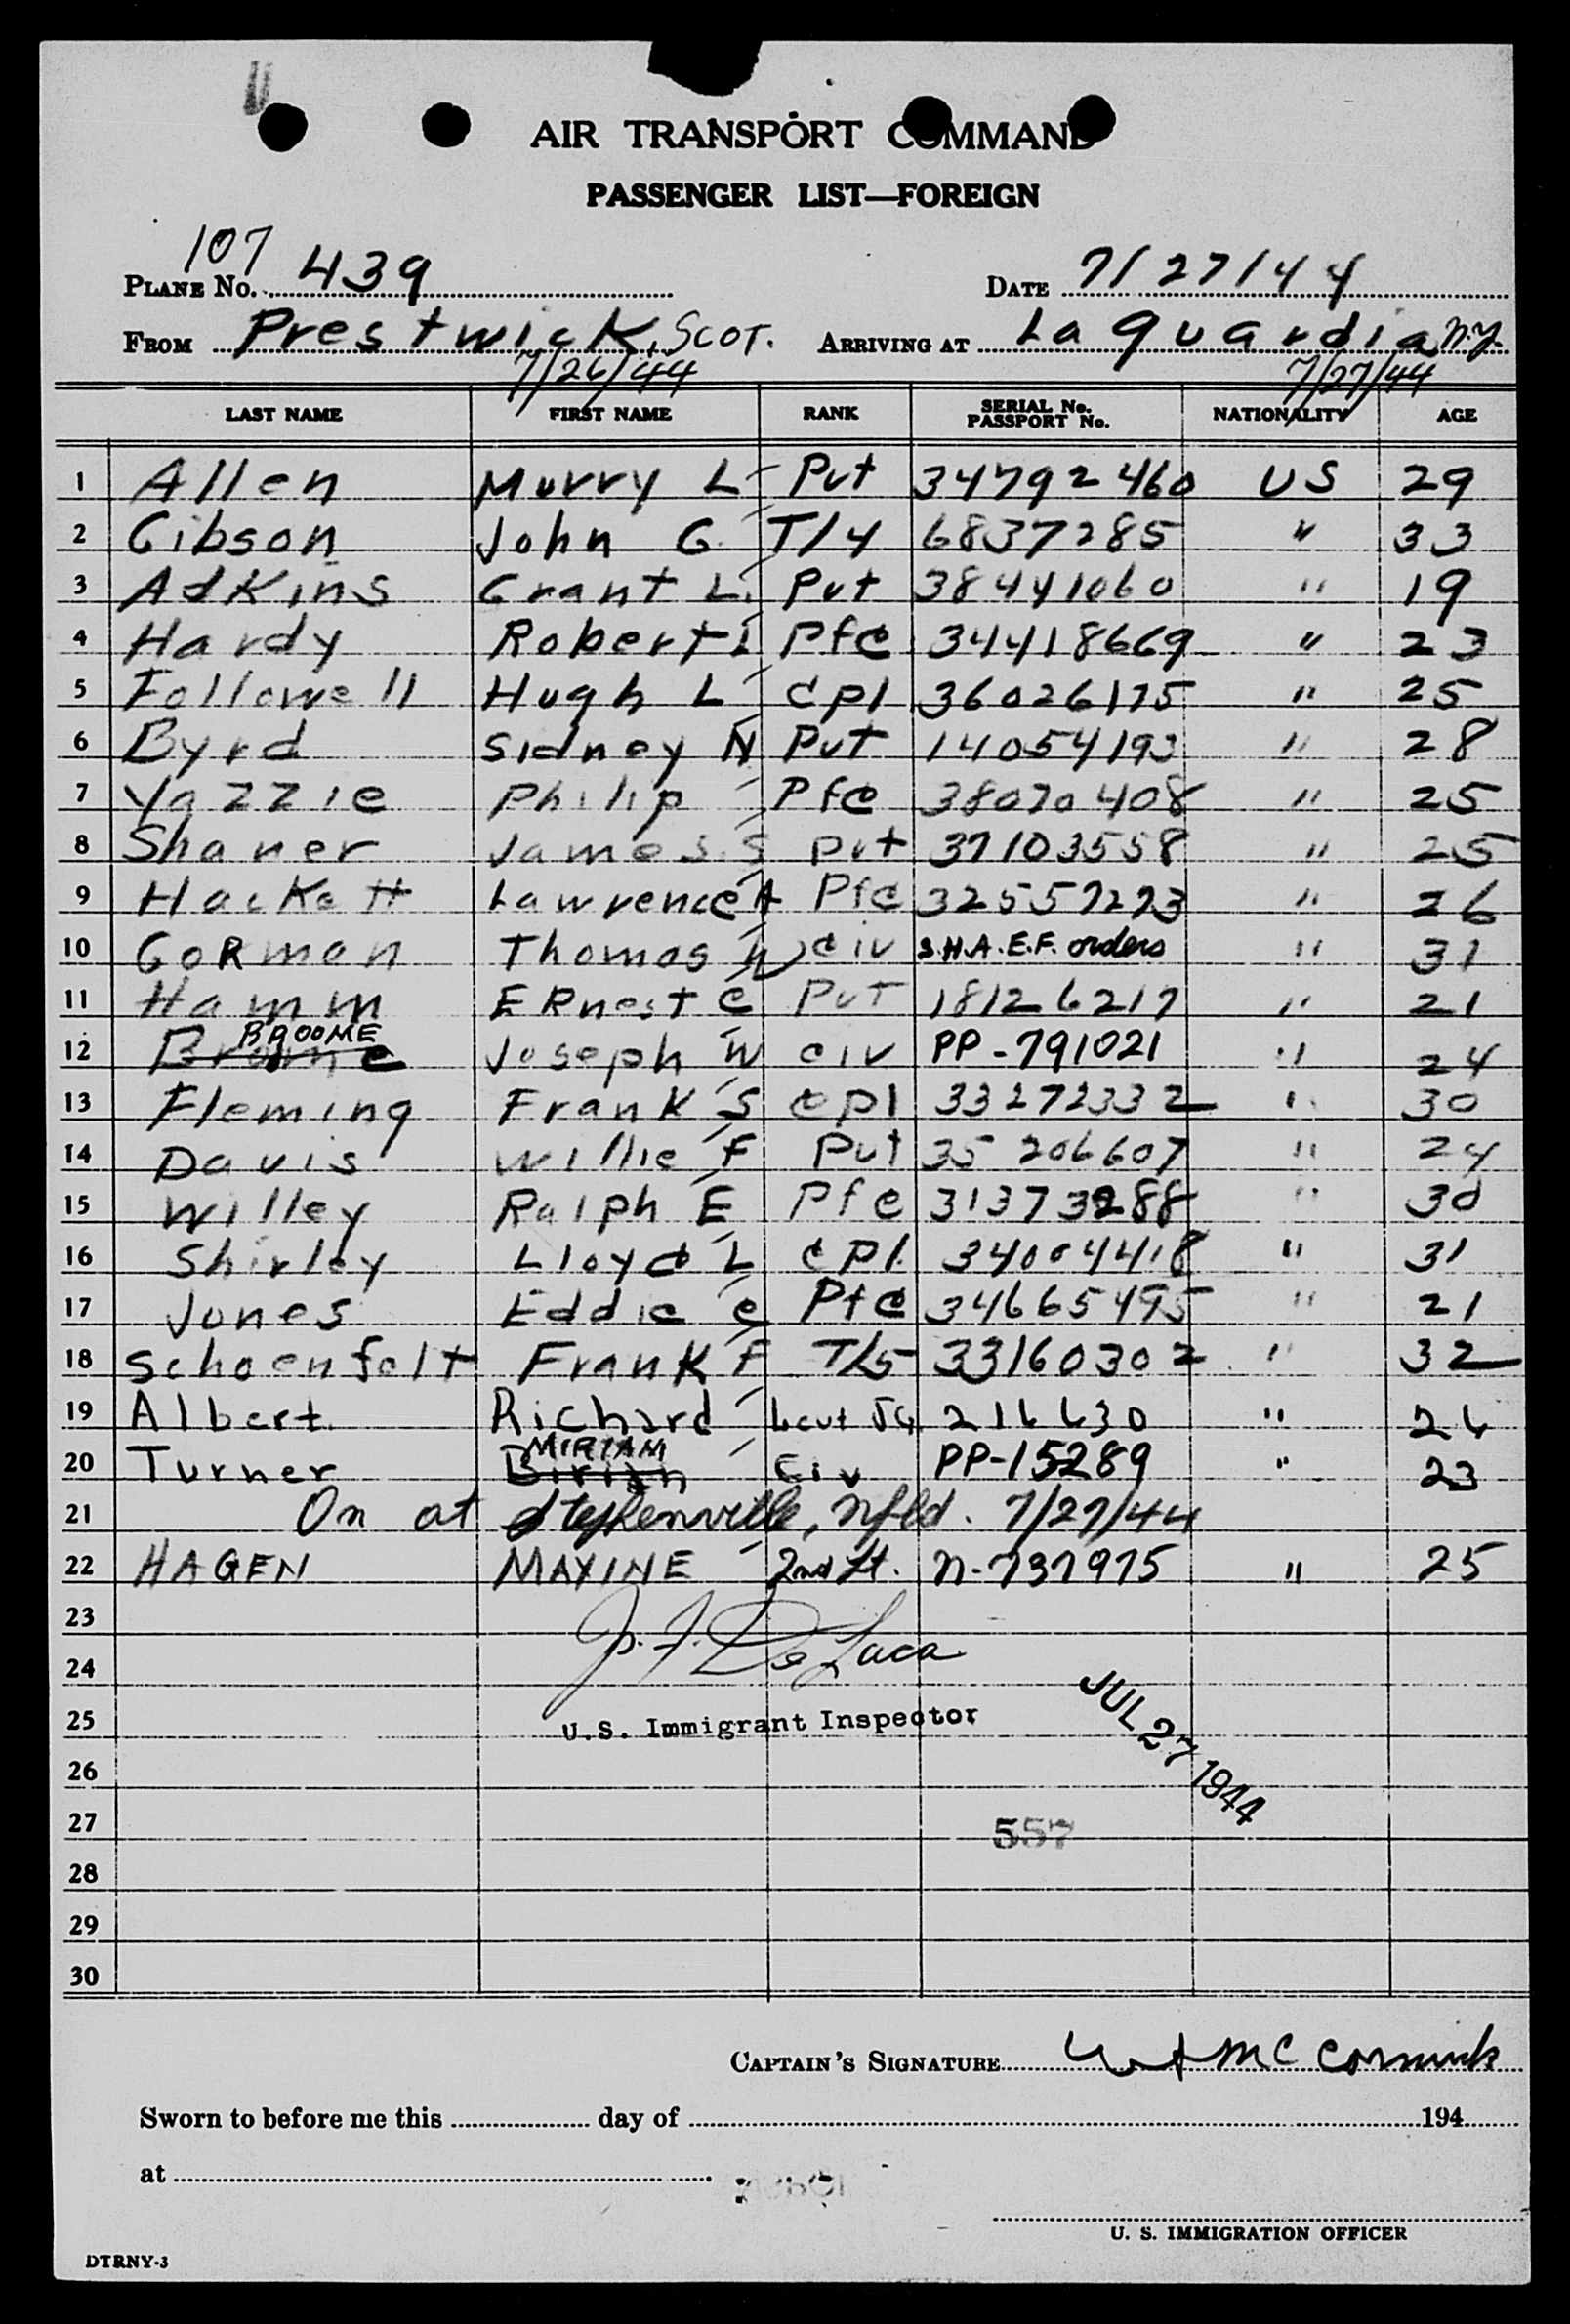 AIR TRANSPORT COMMAND
PASSENGER LIST—FOREIGN
107
PLANE No. 439 DATE 7/27/44
FROM Prestwick, SCOT. ARRIVING AT La Guardia N.Y.
7/26/44 7/27/44
LAST NAME FIRST NAME RANK SERIAL No. PASSPORT No. NATIONALITY AGE
1 Allen Murry L Pvt 34792460 US 29
2 Gibson John G. T/4 6837285 " 33
3 Adkins Grant L. Pvt 38441060 " 19
4 Hardy Robert I Pfc 34418669 " 23
5 Followell Hugh L Cpl 36026175 " 25
6 Byrd Sidney N Pvt 14054193 " 28
7 Yazzie Philip Pfc 38070408 " 25
8 Shaner James S Pvt 37103558 " 25
9 Hackett Lawrence A Pfc 32557273 " 26
10 GoRman Thomas W civ S.H.A.E.F. orders " 31
11 Hamm ERnest C PvT 18126217 " 21
BROOME
12 Joseph W civ PP-791021 " 24
13 Fleming Frank S cpl 33272332 " 30
14 Davis Willie F Pvt 35 206607 " 24
15 Willey Ralph E Pfc 31373288 " 30
16 Shirley Lloyd L cpl. 34004418 " 31
17 Jones Eddie C Pfc 34665495 " 21
18 Schoenfelt Frank F T/5 33160302 " 32
MIRIAM
19 Albert Richard Lieut JG 216630 " 26
20 Turner Civ PP-15289 " 23
21 On at Stephenville, Nfld. 7/27/44
22 HAGEN MAXINE 2nd Lt. N-737975 " 25
23
J. F. De Luca
24
25 U.S. Immigrant Inspector
JUL 27 1944
26
27 557
28
29
30
CAPTAIN'S SIGNATURE McCormick
Sworn to before me this day of 194
at
U. S. IMMIGRATION OFFICER
DTRNY-3